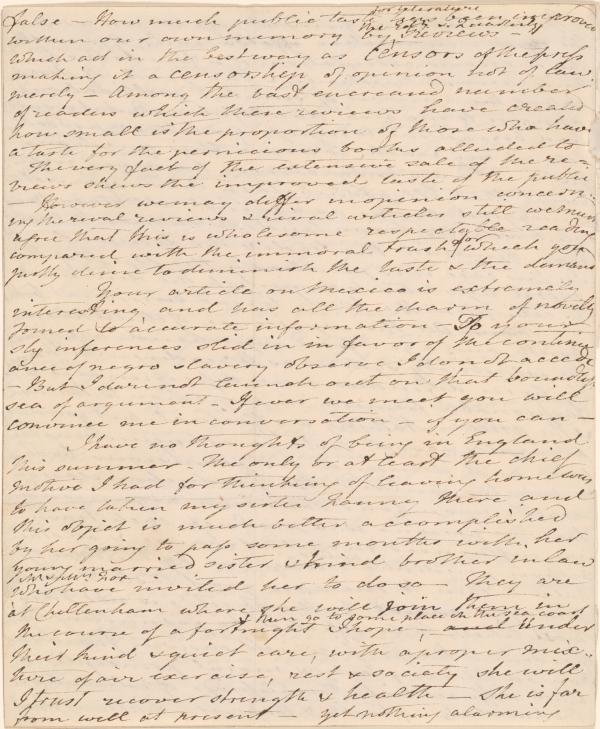 false – How much public taste for literature has been improved
within our own memory by the Edr & Quarterly Reviews –
which act in the best way as Censors of the press
making it a censorship of opinion not of law
merely – Among the vast encreased number
of readers which these reviews have created
how small is the proportion of those who have
a taste for the pernicious books alluded to
The very fact of the extensive sale of the re=
views shews the improved taste of the public
– However we may differ in opinion concern=
ing the rival reviews & rival articles still we must
agree that this is wholesome respectable reading
compared with the immoral trash for which you
justly desire to diminish the taste & the demand
Your article on Mexico is extremely
interesting and has all the charm of novelty
joined to accurate information – To your
sly inferences slid in in favor of the continu
ance of negro slavery observe I do not accede
– But I dare not launch out on that boundless
sea of argument – If ever we meet you will
convince me in conversation – if you can –
I have no thoughts of being in England
this summer – The only or at least the chief
motive I had for thinking of leaving home was
to have taken my sister Fanny there and
this object is much better accomplished
by her going to pass some months with her
young married sister & kind brother in law
Mr & Mrs Fox
who have invited her to do so – They are
at Cheltenham where she will join them in
the course of a fortnight I hope, & then go to some place on the sea coast – and under
their kind & quiet care, with a proper mix=
ture of air exercise, rest & society she will
I trust recover strength & health – She is far
from well at present – yet nothing alarming